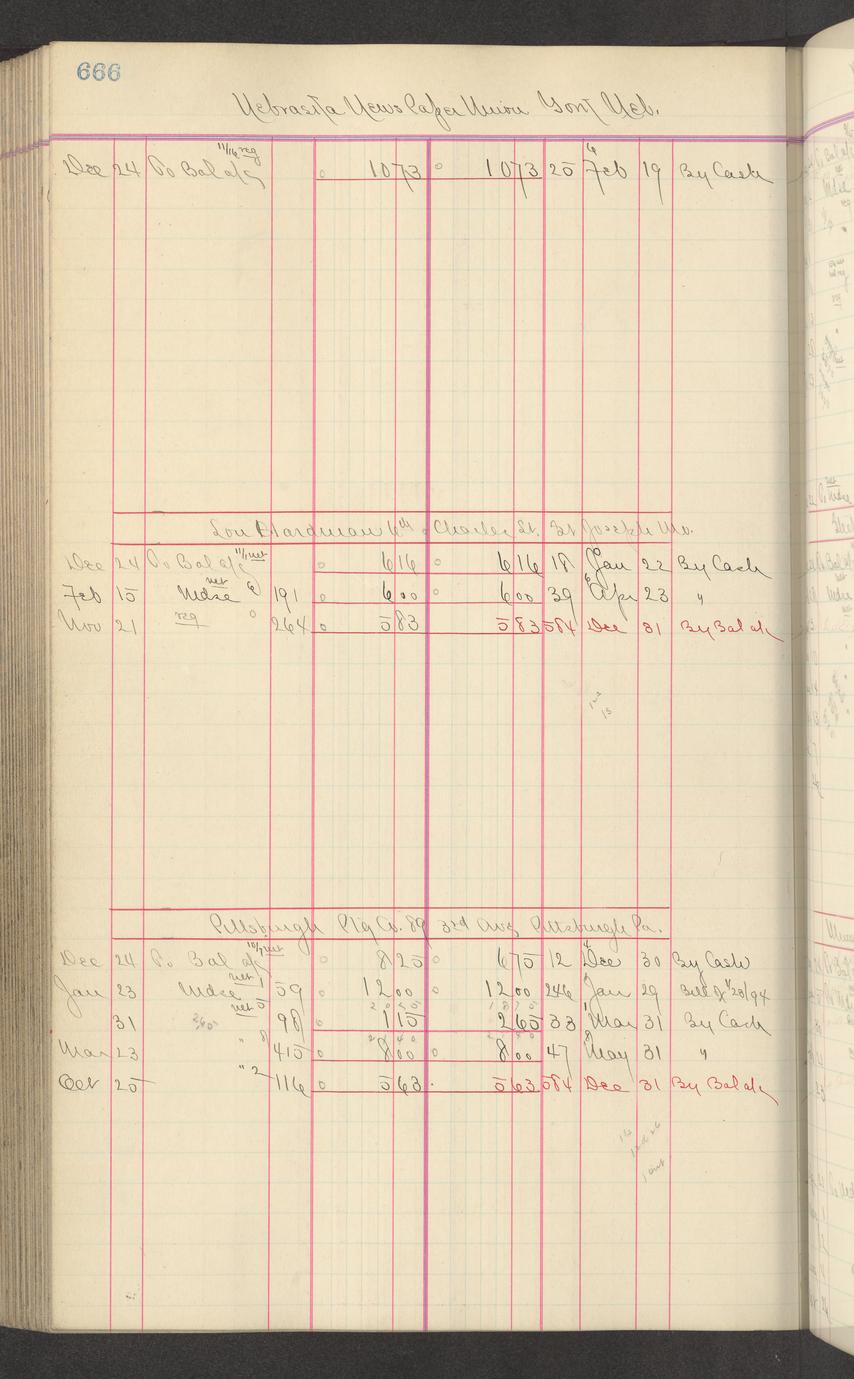 666
Nebraska News Paper Union Gont Neb.
11/16 reg 6
Dec 24 To Bal a/c 10 73 10 73 25 Feb 19 By Cash
Lou Hardman 6th & Charles St. St Joseph Mo.
11/1 net
Dec 24 To Bal a/c 6 16 6 16 18 Jan 22 By Cash
Feb 15 Mdse net 6 191 6 00 6 00 39 Apr 23 "
Nov 21 reg 0 264 5 83 5 83 584 Dec 31 By Bal a/c
Pittsburgh Ptg Co. 89 3rd Ave Pittsburgh Pa.
10/7 net
Dec 24 To Bal a/c 8 25 6 75 12 Dec 30 By Cash
Jan 23 Mdse net 1 59 12 00 12 00 246 Jan 29 Bill of 1/23/94
31 net 5 98 1 15 2 65 33 Mar 31 By Cash
Mar 23 " 8 415 8 00 8 00 47 May 31 "
Oct 25 " 2 116 5 63 5 63 584 Dec 31 By Bal a/c